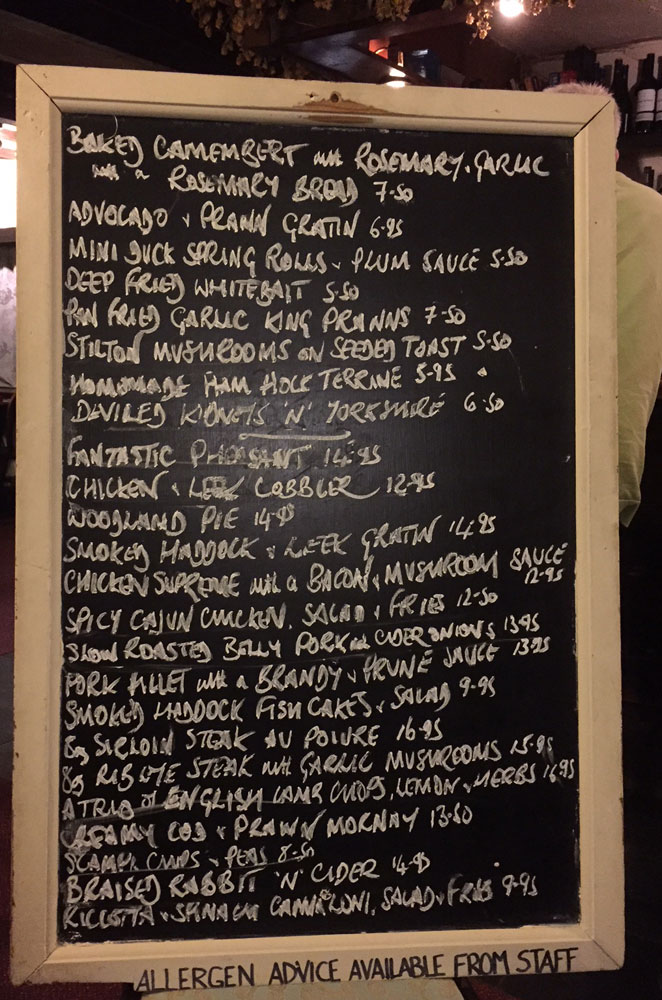 BAKED CAMEMBERT with ROSEMARY, GARLIC
with a ROSEMARY BREAD 7-50
ADVOCADO + PRAWN GRATIN 6-95
MINI DUCK SPRING ROLLS + PLUM SAUCE 5-50
DEEP FRIED WHITEBAIT 5-50
PAN FRIED GARLIC KING PRAWNS 7-50
STILTON MUSHROOMS ON SEEDED TOAST 5-50
HOMEMADE HAM HOCK TERRINE 5-95
DEVILED KIDNEYS 'N' YORKSHIRE 6-50
FANTASTIC PHEASANT 14-95
CHICKEN + LEEK COBBLER 12-95
WOODLAND PIE 14-95
SMOKED HADDOCK + LEEK GRATIN 14-95
CHICKEN SUPREME with a BACON + MUSHROOM SAUCE
12-95
SPICY CAJUN CHICKEN, SALAD + FRIES 12-50
SLOW ROASTED BELLY PORK with CIDER ONIONS 13-95
PORK FILLET with a BRANDY + PRUNE SAUCE 13-95
SMOKED HADDOCK FISH CAKES + SALAD 9-95
8oz SIRLOIN STEAK AU POIVRE 16-95
8oz RIB EYE STEAK with GARLIC MUSHROOMS 15-95
A TRIO OF ENGLISH LAMB CHOPS, LEMON + HERBS 16-95
CREAMY COD + PRAWN MORNAY 13-50
SCAMPI CHIPS + PEAS 8-50
BRAISED RABBIT 'N' CIDER 14-95
RICCOTTA + SPINACH CANNELONI, SALAD + FRIES 9-95
ALLERGEN ADVICE AVAILABLE FROM STAFF